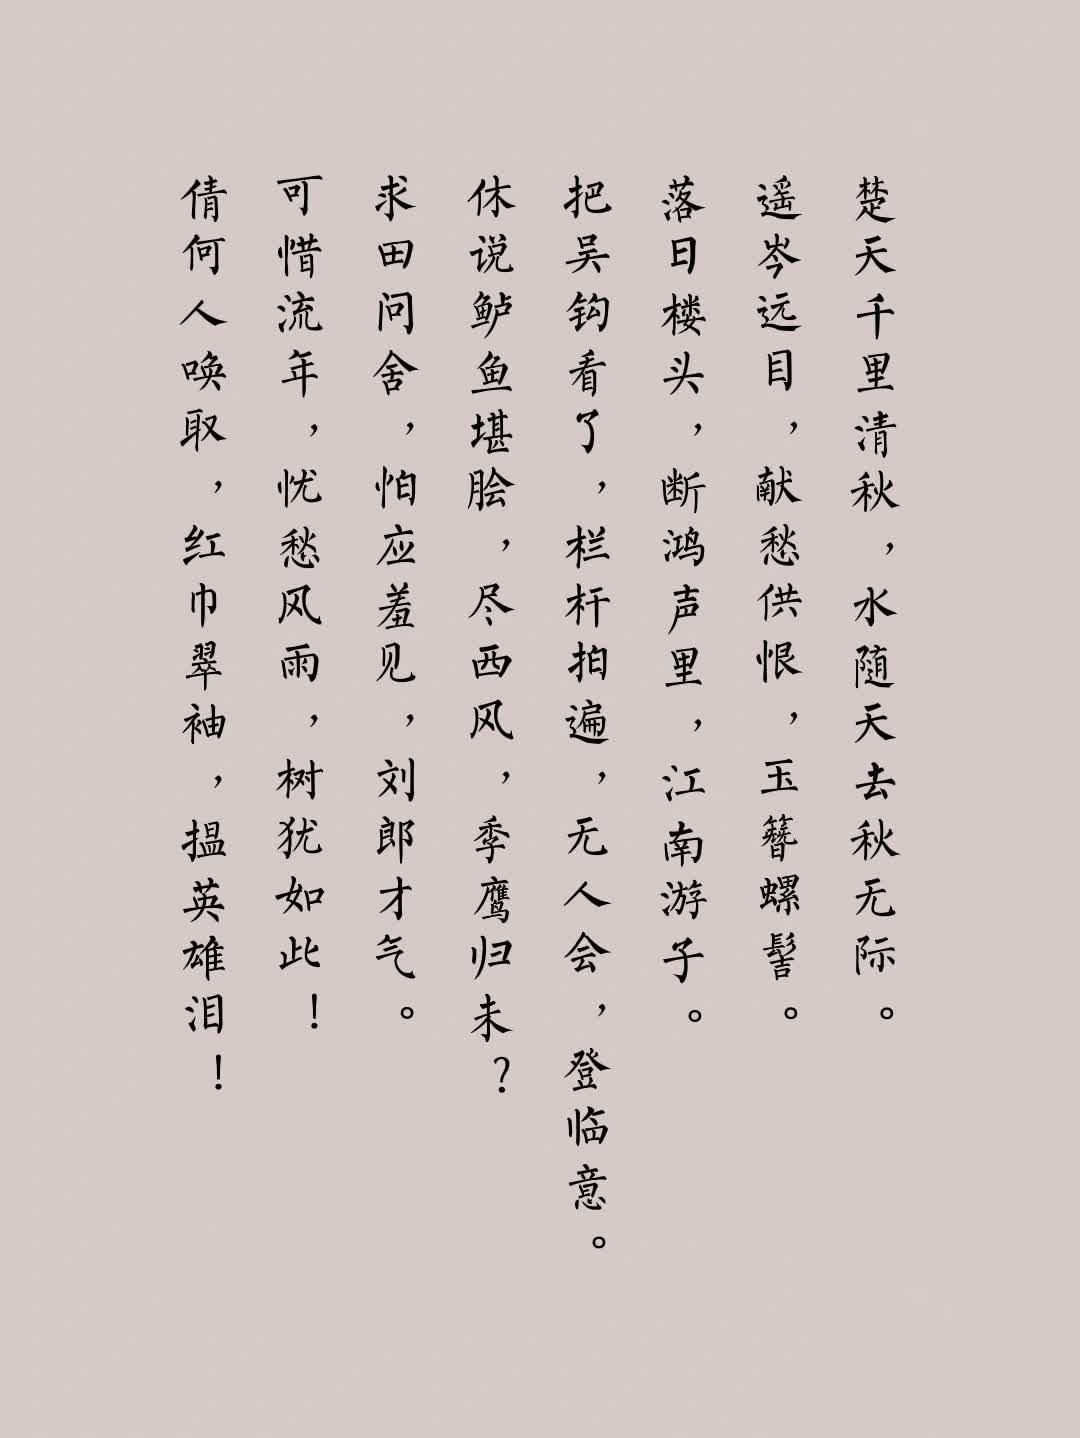 楚天千里清秋，水随天去秋无际。
遥岑远目，献愁供恨，玉簪螺髻。
落日楼头，断鸿声里，江南游子。
把吴钩看了，栏杆拍遍，无人会，登临意。
休说鲈鱼堪脍，尽西风，季鹰归未？
求田问舍，怕应羞见，刘郎才气。
可惜流年，忧愁风雨，树犹如此！
倩何人唤取，红巾翠袖，揾英雄泪！